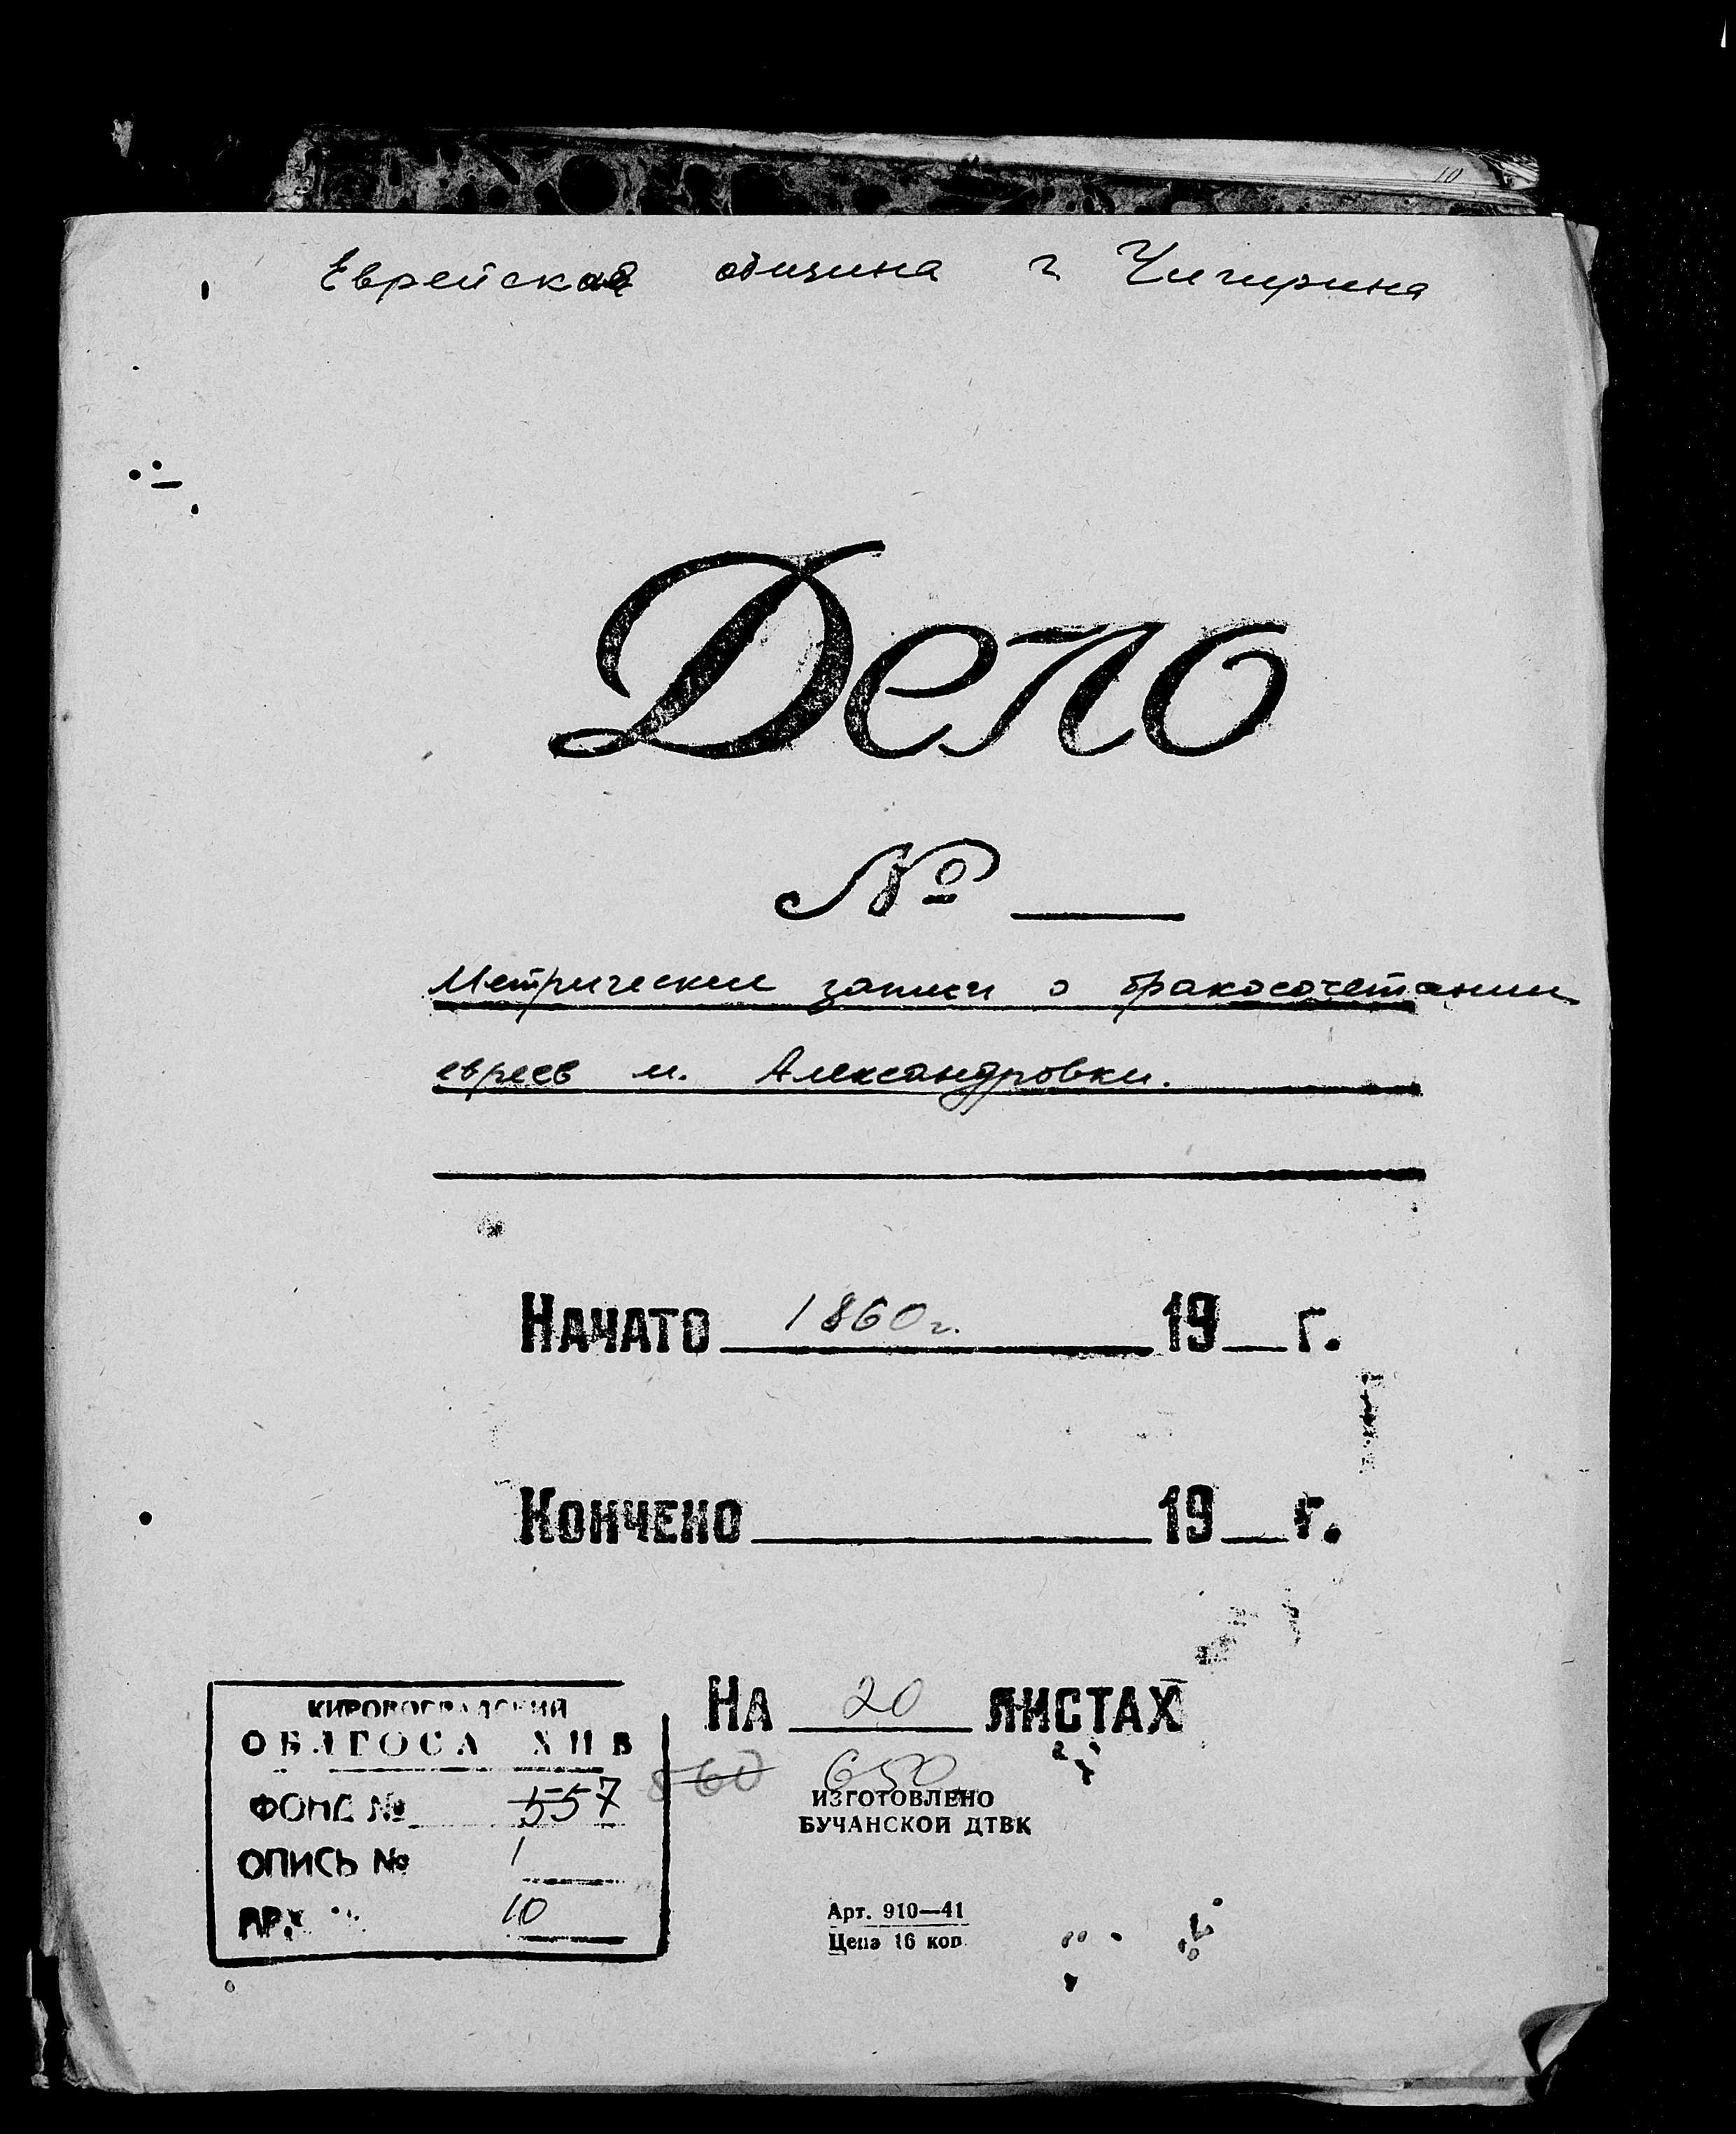 10
Еврейская община г. Чигирина
Дело
№
Метрические записи о бракосочетании
евреев м. Александровки.
Начато 1860 г. 19 г.
Кончено 19 г.
На 20 листах
КИРОВОГРАДСКИЙ
ОБЛГОСА ХИВ
ФОНД № 557
860 650
ОПИСЬ № 1
АРХ 10
ИЗГОТОВЛЕНО
БУЧАНСКОЙ ДТВК
Арт. 910—41
Цена 16 коп.